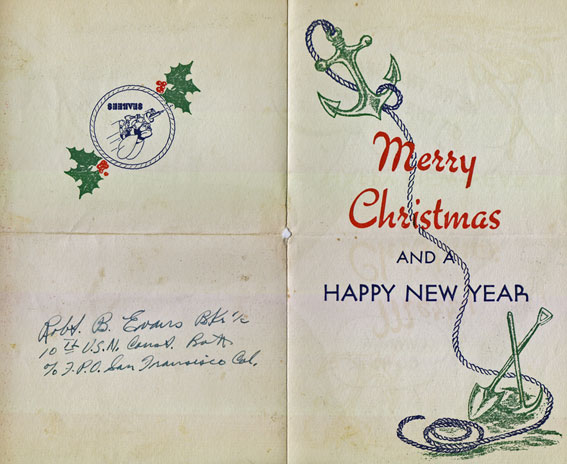 SEABEES
Robt. B. Evans Bkr 1/c
10th U.S.N. Const. Batt.
c/o F.P.O. San Francisco Cal.
Merry
Christmas
AND A
HAPPY NEW YEAR